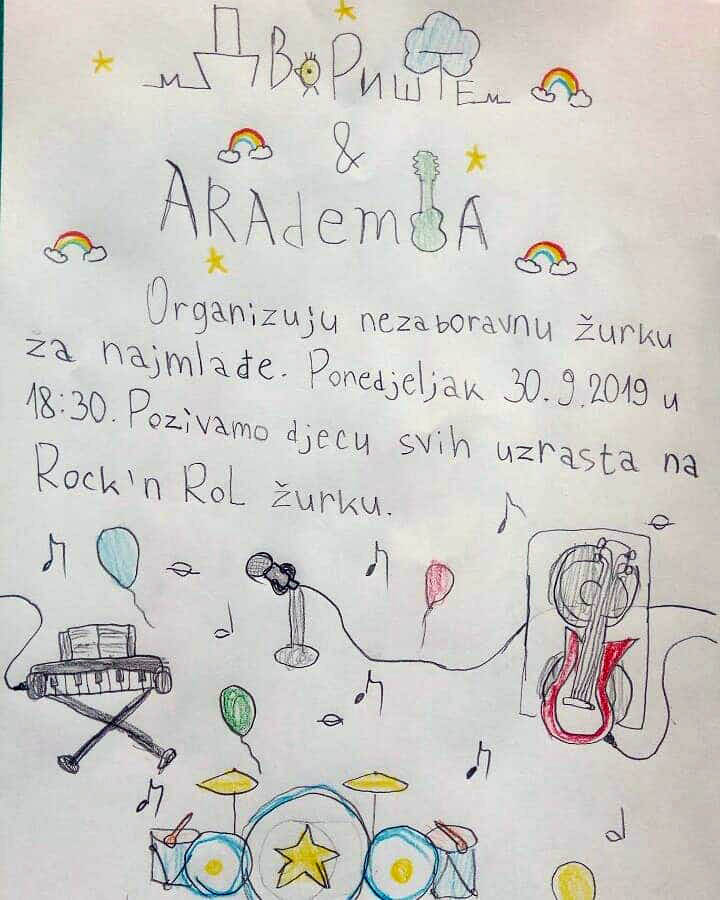 ДВоРиштЕ
&
AKAdemiJA
Organizuju nezaboravnu žurku
za najmlađe. Ponedjeljak 30.9.2019 u
18:30. Pozivamo djecu svih uzrasta na
Rock'n RoL žurku.